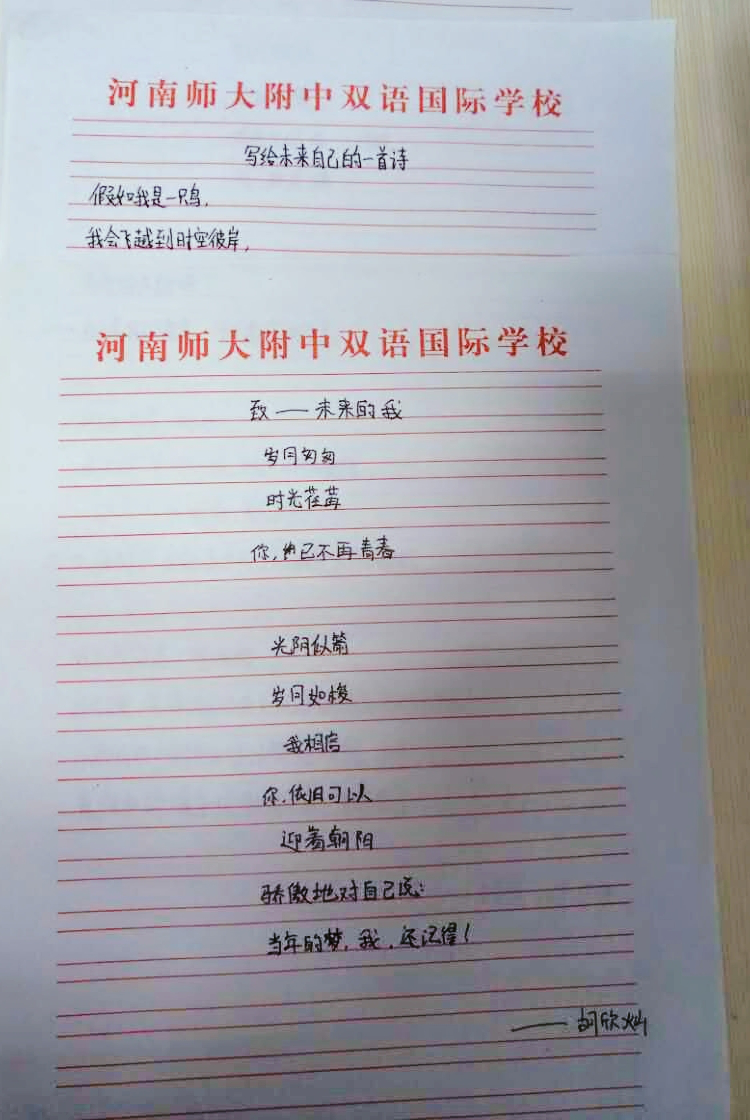 河南师大附中双语国际学校
写给未来自己的一首诗
假如我是一只鸟,
我会飞越到时空彼岸,
河南师大附中双语国际学校
致——未来的我
岁月匆匆
时光荏苒
你,也已不再青春
光阴似箭
岁月如梭
我相信
你,依旧可以
迎着朝阳
骄傲地对自己说:
当年的梦,我,还记得!
——胡欣灿